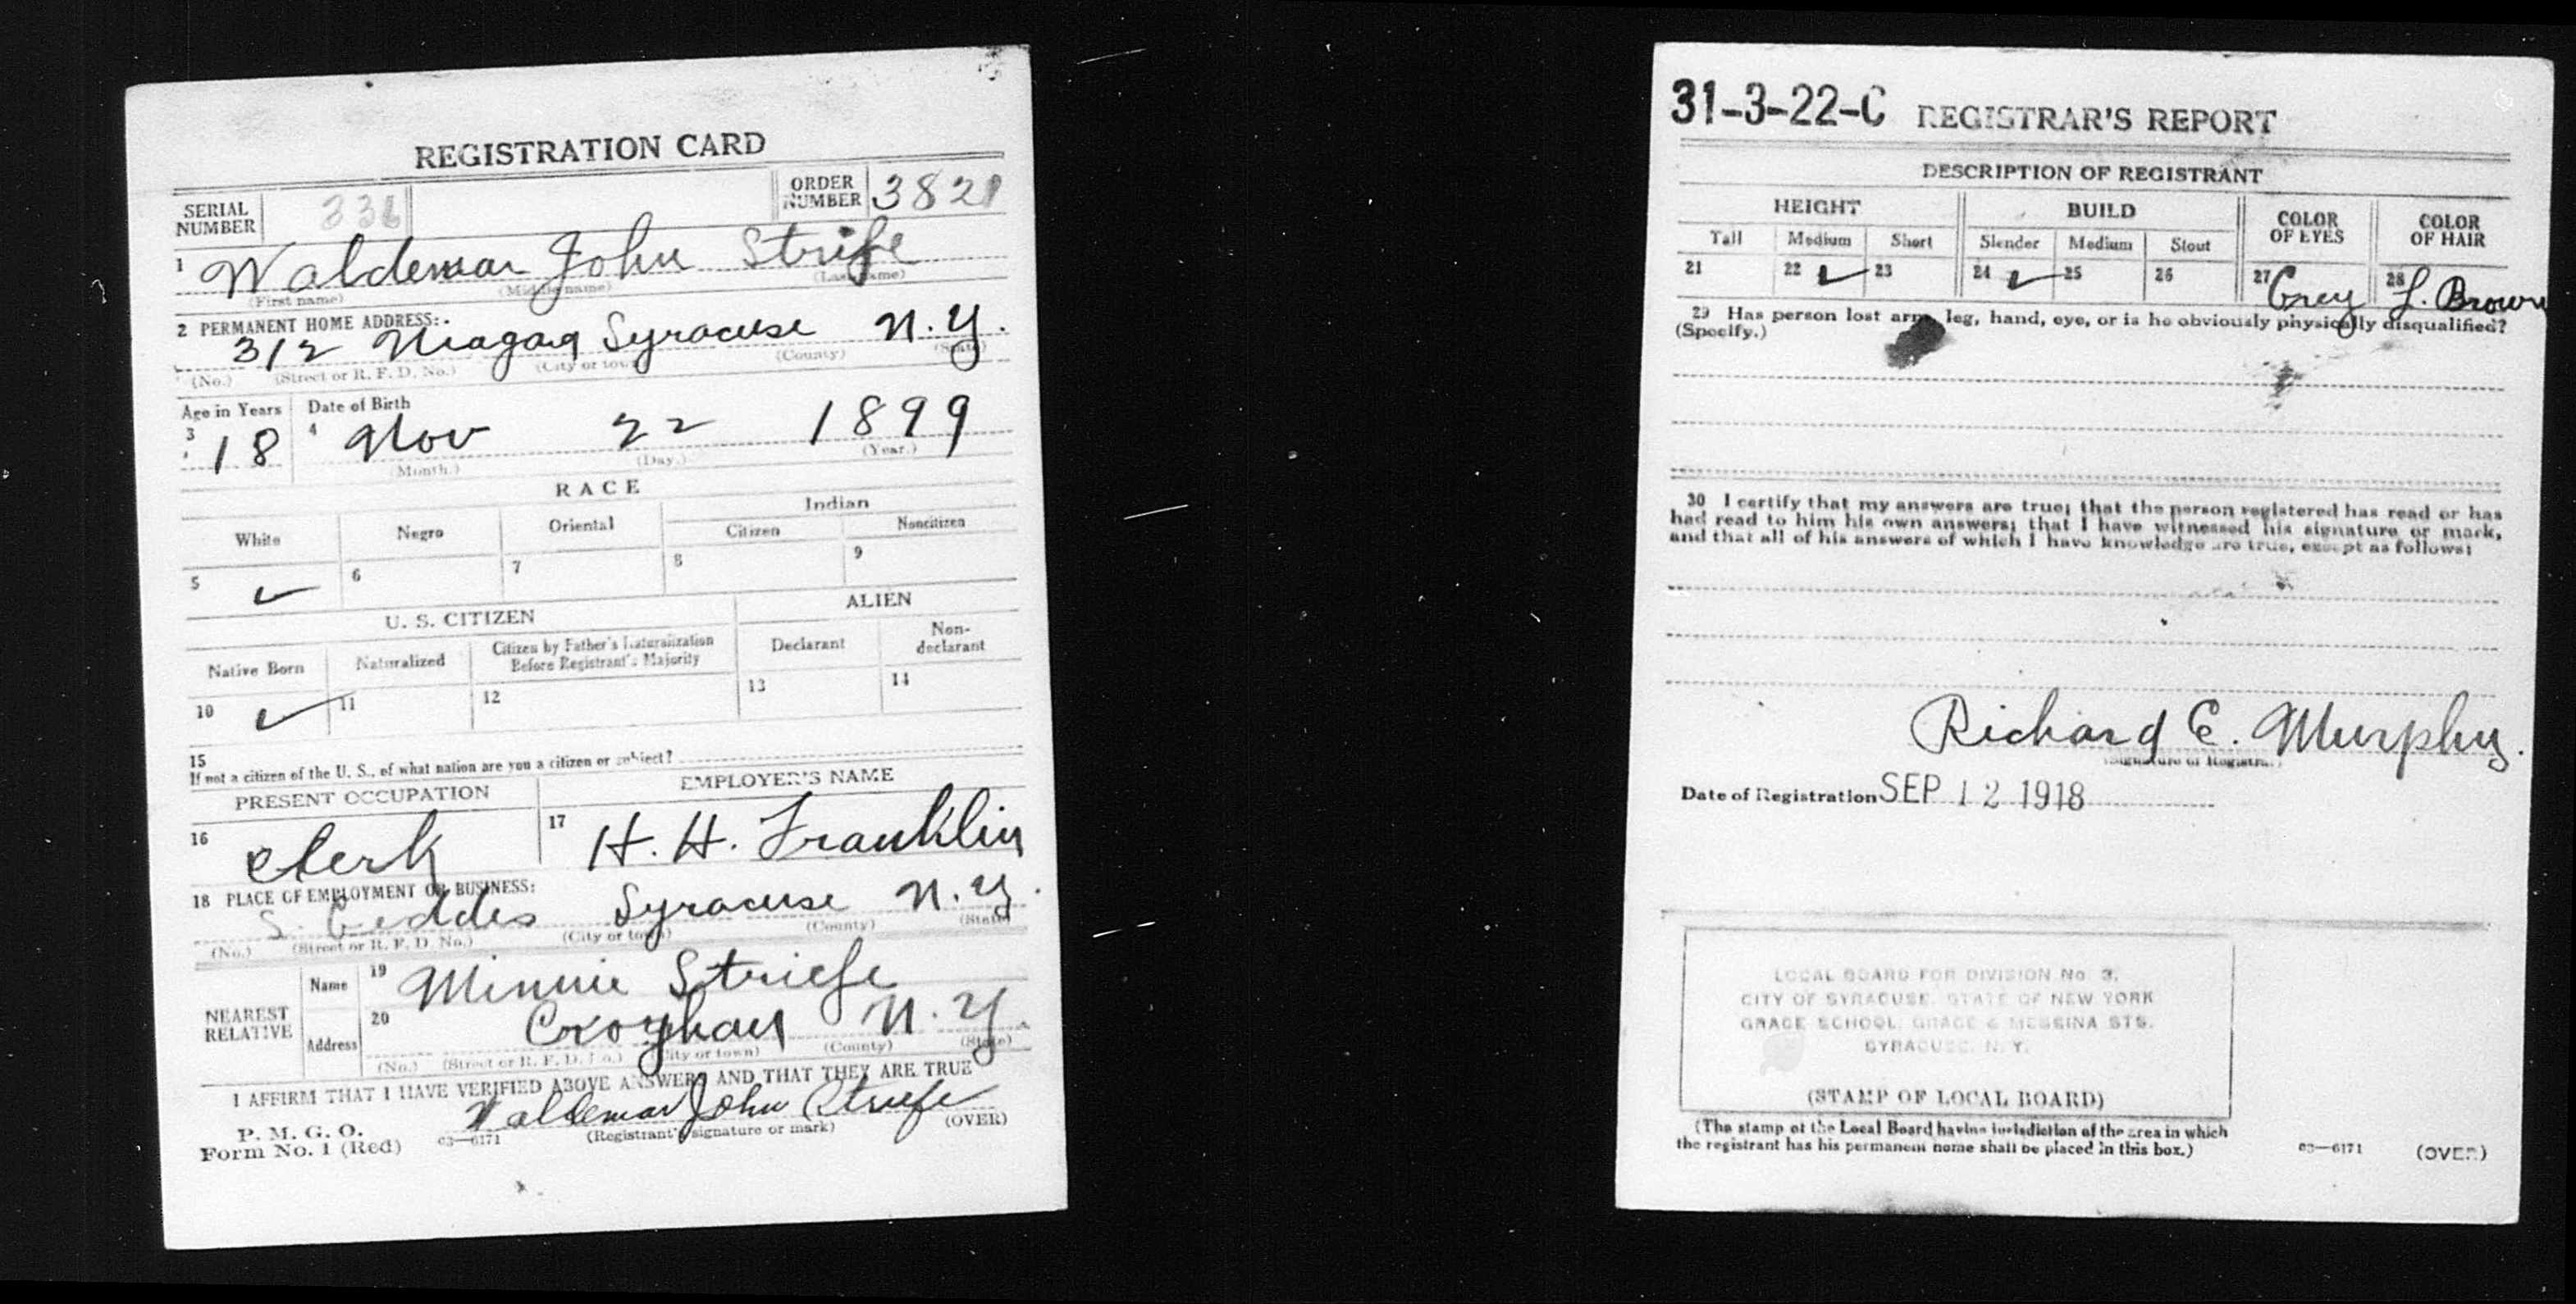 REGISTRATION CARD
SERIAL NUMBER 336 ORDER NUMBER 3821
1 Waldemar John Striefe
(First name) (Middle name) (Last name)
2 PERMANENT HOME ADDRESS:
312 Niagaq Syracuse N.Y.
(No.) (Street or R. F. D. No.) (City or town) (County) (State)
Age in Years Date of Birth
3 18 4 Nov 22 1899
(Month.) (Day.) (Year.)
RACE
White Negro Oriental Indian
Citizen Noncitizen
5 ✓ 6 7 8 9
U. S. CITIZEN ALIEN
Native Born Naturalized Citizen by Father's Naturalization Before Registrant's Majority Declarant Non-declarant
10 ✓ 11 12 13 14
15
If not a citizen of the U. S., of what nation are you a citizen or subject?
PRESENT OCCUPATION EMPLOYER'S NAME
16 Clerk 17 H. H. Franklin
18 PLACE OF EMPLOYMENT OR BUSINESS:
S. Geddes Syracuse N.Y.
(No.) (Street or R. F. D. No.) (City or town) (County) (State)
NEAREST RELATIVE
Name 19 Minnie Striefe
Address 20 Croghan N.Y.
(No.) (Street or R. F. D. No.) (City or town) (County) (State)
I AFFIRM THAT I HAVE VERIFIED ABOVE ANSWERS AND THAT THEY ARE TRUE
Waldemar John Striefe
P. M. G. O.
Form No. 1 (Red) 03—6171 (Registrant's signature or mark) (OVER)
31-3-22-C REGISTRAR'S REPORT
DESCRIPTION OF REGISTRANT
HEIGHT BUILD COLOR OF EYES COLOR OF HAIR
Tall Medium Short Slender Medium Stout
21 22 ✓ 23 24 ✓ 25 26 27 Grey 28 L. Brown
29 Has person lost arm, leg, hand, eye, or is he obviously physically disqualified?
(Specify.)
30 I certify that my answers are true; that the person registered has read or has
had read to him his own answers; that I have witnessed his signature or mark,
and that all of his answers of which I have knowledge are true, except as follows:
Richard E. Murphy.
(Signature of Registrar)
Date of Registration SEP 12 1918
LOCAL BOARD FOR DIVISION No. 3,
CITY OF SYRACUSE, STATE OF NEW YORK
GRACE SCHOOL, GRACE & MESSINA STS.
SYRACUSE, N. Y.
(STAMP OF LOCAL BOARD)
(The stamp of the Local Board having jurisdiction of the area in which
the registrant has his permanent home shall be placed in this box.)
03—6171 (OVER)